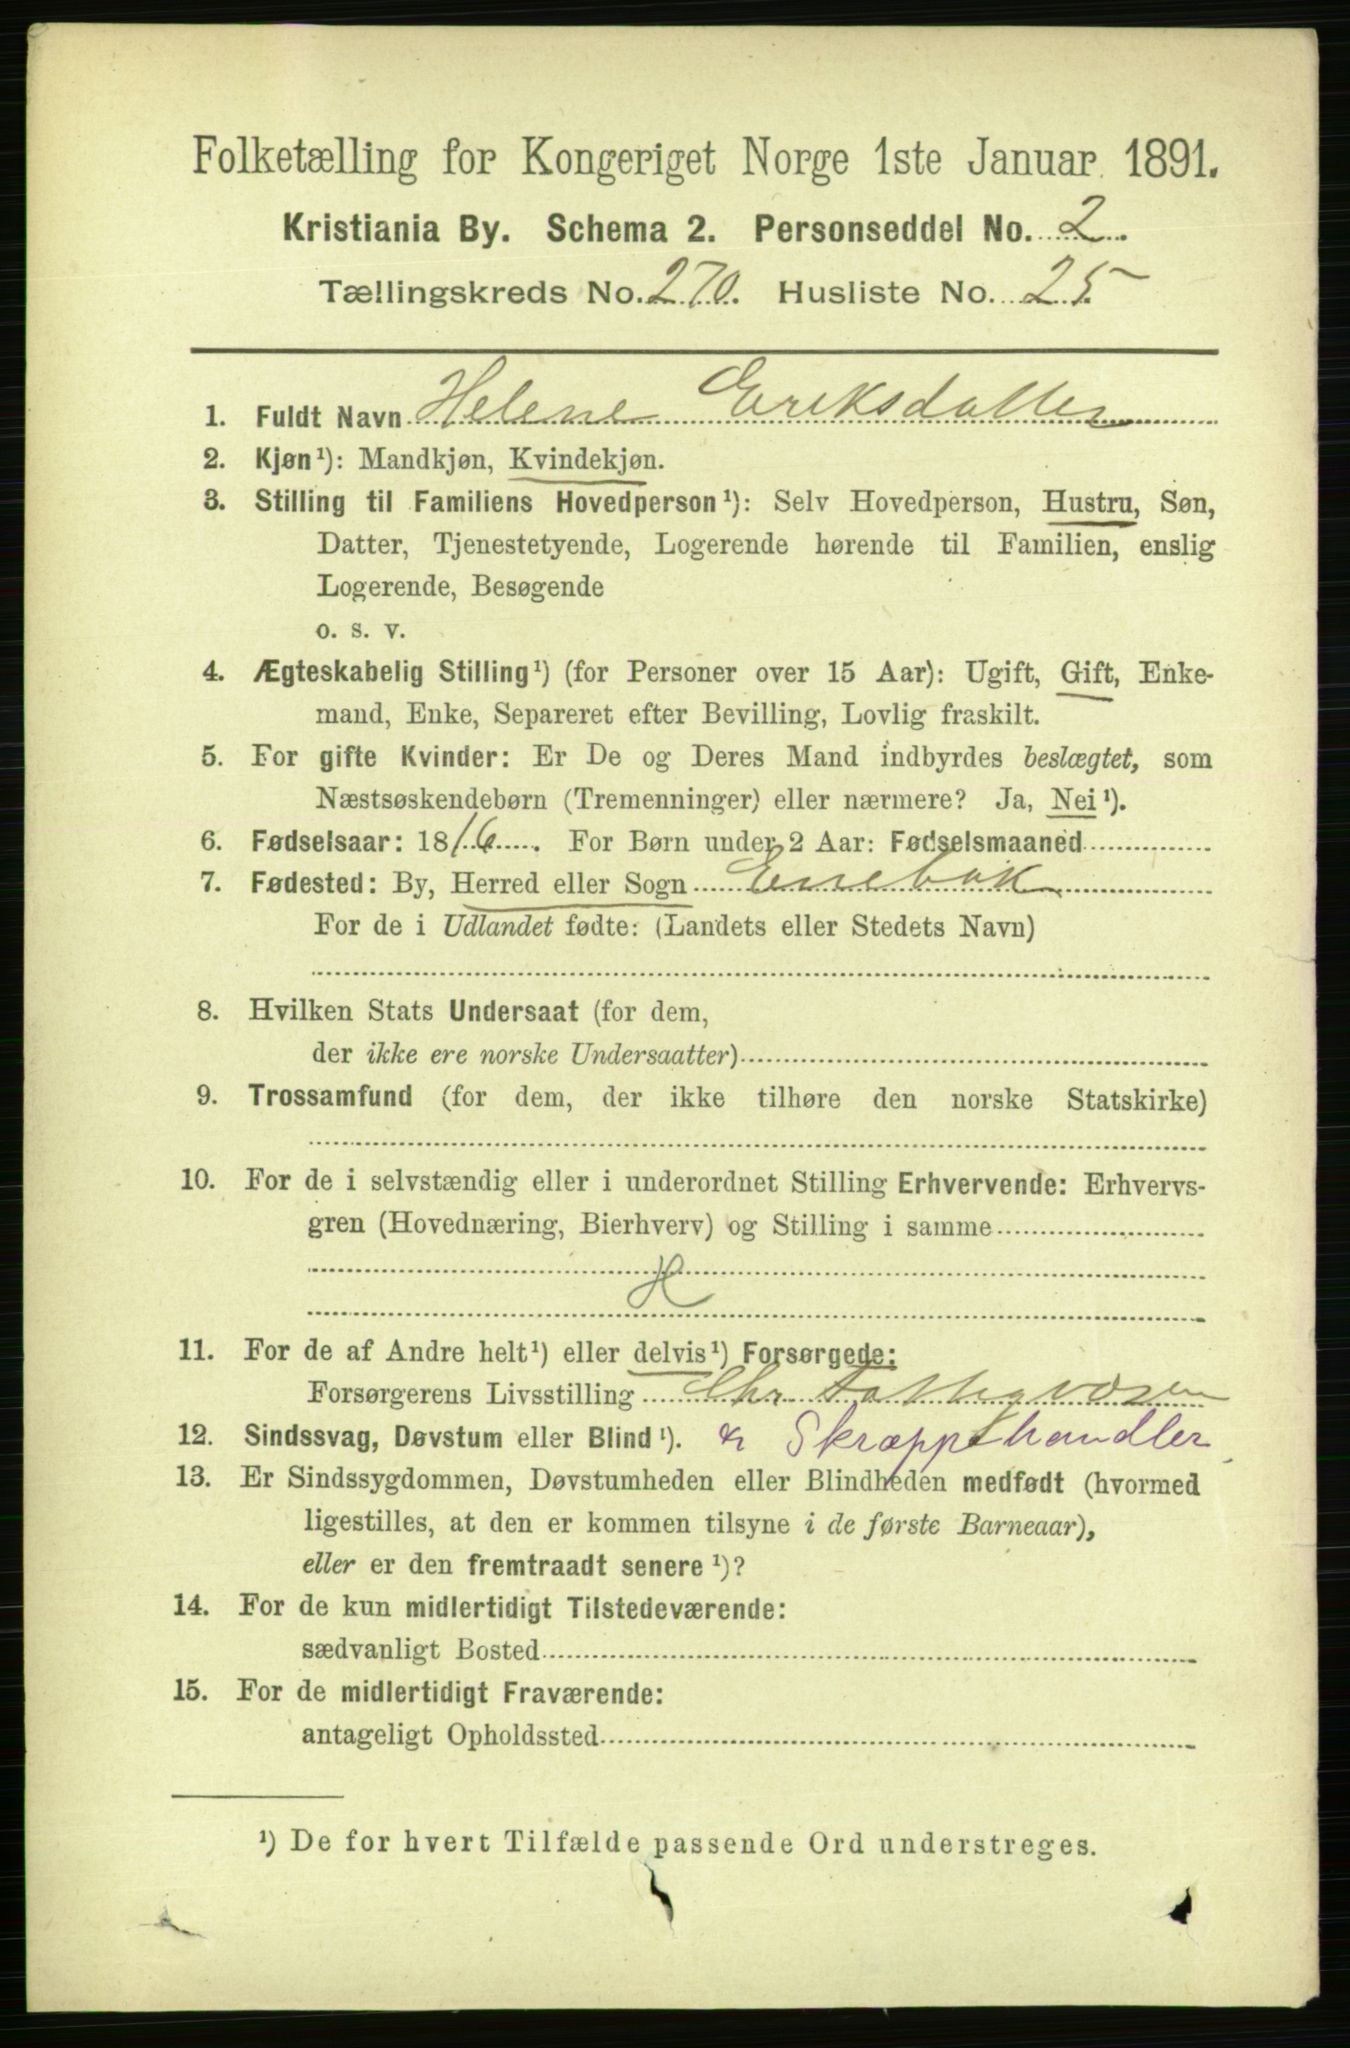 Folketælling for Kongeriget Norge 1ste Januar 1891.
Kristiania By. Schema 2. Personseddel No. 2.
Tællingskreds No. 270. Husliste No. 25
1. Fuldt Navn Helene Eriksdatter
2. Kjøn¹): Mandkjøn, Kvindekjøn.
3. Stilling til Familiens Hovedperson¹): Selv Hovedperson, Hustru, Søn,
Datter, Tjenestetyende, Logerende hørende til Familien, enslig
Logerende, Besøgende
o. s. v.
4. Ægteskabelig Stilling¹) (for Personer over 15 Aar): Ugift, Gift, Enke-
mand, Enke, Separeret efter Bevilling, Lovlig fraskilt.
5. For gifte Kvinder: Er De og Deres Mand indbyrdes beslægtet, som
Næstsøskendebørn (Tremenninger) eller nærmere? Ja, Nei¹).
6. Fødselsaar: 1816. For Børn under 2 Aar: Fødselsmaaned
7. Fødested: By, Herred eller Sogn Enebak
For de i Udlandet fødte: (Landets eller Stedets Navn)
8. Hvilken Stats Undersaat (for dem,
der ikke ere norske Undersaatter)
9. Trossamfund (for dem, der ikke tilhøre den norske Statskirke)
10. For de i selvstændig eller i underordnet Stilling Erhvervende: Erhvervs-
gren (Hovednæring, Bierhverv) og Stilling i samme
H
11. For de af Andre helt¹) eller delvis¹) Forsørgede:
Forsørgerens Livsstilling Chr Fattigvæsen
12. Sindssvag, Døvstum eller Blind¹). & Skrapphandler
13. Er Sindssygdommen, Døvstumheden eller Blindheden medfødt (hvormed
ligestilles, at den er kommen tilsyne i de første Barneaar),
eller er den fremtraadt senere¹)?
14. For de kun midlertidigt Tilstedeværende:
sædvanligt Bosted
15. For de midlertidigt Fraværende:
antageligt Opholdssted
¹) De for hvert Tilfælde passende Ord understreges.